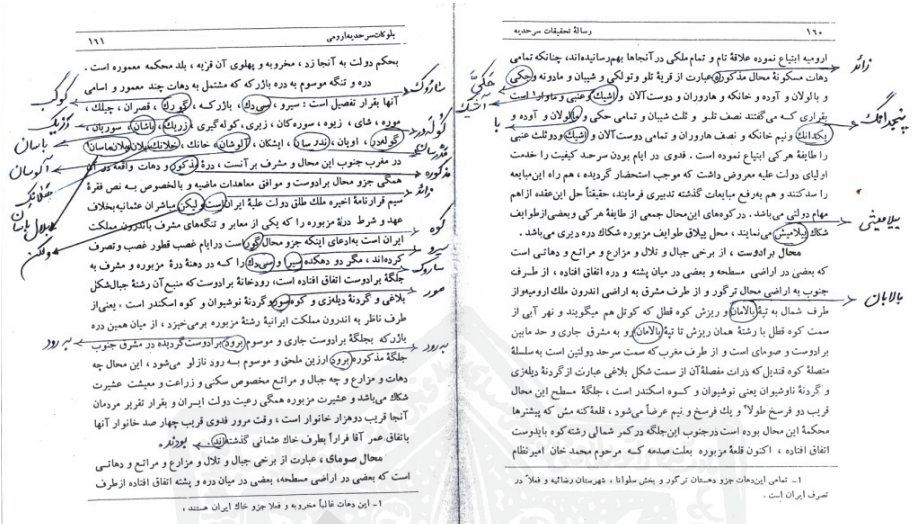 ۱۶۰ رسالهٔ تحقیقات سرحدیه
ارومیه ابتیاع نموده علاقهٔ تام و تمام ملکی در آنجاها بهم رسانیده‌اند، چنانکه تمامی
دهات مسکونهٔ محال مذکوره عبارت از قریهٔ تلو و تولکی و شیبان و مادونه و جکی
و بالولان و آوده و خانکه و هاروران و دوست‌آلان و اشیك و عنبی و ماوارا است
بقراری که می‌گفتند نصف تلو و ثلث شیبان و تمامی حکی و بالولان و آوده و
یکدانك ونیم خانکه و نصف هاروران و تمامی دوست‌آلان و اشیك ودو ثلث عنبی
را طایفهٔ هرکی ابتیاع نموده است. فدوی در ایام بودن سرحد کیفیت را خدمت
اولیای دولت علیه معروض داشت که موجب استحضار گردیده ، هم راه این‌مبایعه
را سد کنند و هم به‌رفع مبایعات گذشته تدبیری فرمایند، حقیقتاً حل این‌عقده از اهم
مهام دولتی می‌باشد . در کوه‌های این‌محال جمعی از طایفهٔ هرکی و بعضی از طوایف
شکاك ییلامیش می‌نمایند ، محل ییلاق طوایف مزبوره شکاك دره دیری می‌باشد .
محال برادوست ، از برخی جبال و تلال و مزارع و مراتع و دهاتی است
که بعضی در اراضی مسطحه و بعضی در میان پشته و دره اتفاق افتاده ، از طرف
جنوب به اراضی محال ترگور و از طرف مشرق به اراضی اندرون ملك ارومیه واز
طرف شمال به تپهٔ بالامان و ریزش کوه قطل که کوتل هم میگویند و نهر آبی از
سمت کوه قطل با رشتهٔ همان ریزش تا تپهٔ بالامان و به مشرق جاری و حد مابین
برادوست و صومای است و از طرف مغرب که سمت سرحد دولتین است به‌سلسلهٔ
متصلهٔ کوه قندیل که ذرات مفصلهٔ آن از سمت شکل بلاغی عبارت از گردنهٔ دیله‌زی
و گردنهٔ ناوشیوان یعنی نوشیوان و کوه اسکندر است ، جلگهٔ مسطح این محال
قریب دو فرسخ طولاً و یك فرسخ و نیم عرضاً می‌شود ، قلعه کنه مش که پیشترها
محکمهٔ این محال بوده است درجنوب این‌جلگه در کمر شمالی رشته کوه بایدوست
اتفاق افتاده ، اکنون قلعهٔ مزبوره بعلت صدمه که مرحوم محمد خان امیر نظام
۱ـ تمامی این‌دهات جزو دهستان ترگور و بخش سلوانا ، شهرستان رضائیه و فعلاً در
تصرف ایران است .
زائد
حکیّ
آشیك
پنجدانگ
با
ییلامیشی
بالابان
بلوکات سرحدیهٔ ارومی ۱۶۱
بحکم دولت به آنجا زد ، مخروبه و پهلوی آن قریه ، بلد محکمه معموره است .
دره و تنگه موسوم به دره بازرکه که مشتمل به دهات چند معمور و اسامی
آنها بقرار تفصیل است : سیرو ، سی‌دك ، بازرکه ، گورك ، قصران ، چبلك ،
موره ، شای ، زیوه ، سوره‌کان ، زیری ، کوله‌گیری ، زریك ، باشان ، سوریان ،
گوله‌در ، اویان ، ندرسان ، ایشکان ، آلوشان ، خانك ، خلانك ، هلان‌هاسان
در مغرب جنوب این محال و مشرف بر آنست ، درهٔ مذکور و دهات واقعه در آن
همگی جزو محال برادوست و موافق معاهدات ماضیه و بالخصوص به نص فقرهٔ
سیم قرارنامهٔ اخیره ملك طلق دولت علیهٔ ایران است و لیکن مباشران عثمانیه بخلاف
عهد و شرط درهٔ مزبوره را که یکی از معابر و تنگه‌های مشرف باندرون مملکت
ایران است به‌ادعای اینکه جزو محال گور است در ایام غصب قطور غصب و تصرف
کرده‌اند ، مگر دو دهکده سیر و سی‌دك را کـه در دهنهٔ درهٔ مزبوره و مشرف به
جلگهٔ برادوست اتفاق افتاده است: رودخانهٔ برادوست که منبع آن رشتهٔ جبال شکل
بلاغی و گردنهٔ دیله‌زی و کوه سور و گردنهٔ نوشیوان و کوه اسکندر است . یعنی از
طرف ناظر به اندرون مملکت ایرانیهٔ رشتهٔ مزبوره برمی‌خیزد ، از میان همین دره
بازرکه بجلگهٔ برادوست جاری و موسوم برود برادوست گردیده در مشرق جنوب
جلگهٔ مذکوره برود ارزین ملحق و موسوم بـه رود نازلو می‌شود ، این محال چه
دهات و مزارع و چه جبال و مراتع مخصوص سکنی و زراعت و معیشت عشیرت
شکاك می‌باشد و عشیرت مزبوره همگی رعیت دولت ایـران و بقرار تقریر مردمان
آنجا قریب دوهزار خانوار است ، وقت مرور فدوی قریب چهار صد خانوار آنها
باتفاق عمر آقا فراراً بطرف خاك عثمانی گذشته‌اند .
محال صومای ، عبارت از برخی جبال و تلال و مزارع و مراتع و دهاتـی
است که بعضی در اراضی مسطحه، بعضی در میان دره و پشته اتفاق افتاده ازطرف
۱ـ این دهات غالباً مخروبه و فعلا جزو خاك ایران هستند ،
گوك
باسان
گوله‌ردر
آلوسان
مذکوره
زائد
ولکن
کوه
سرو
مور
به رود
به رود
بودند